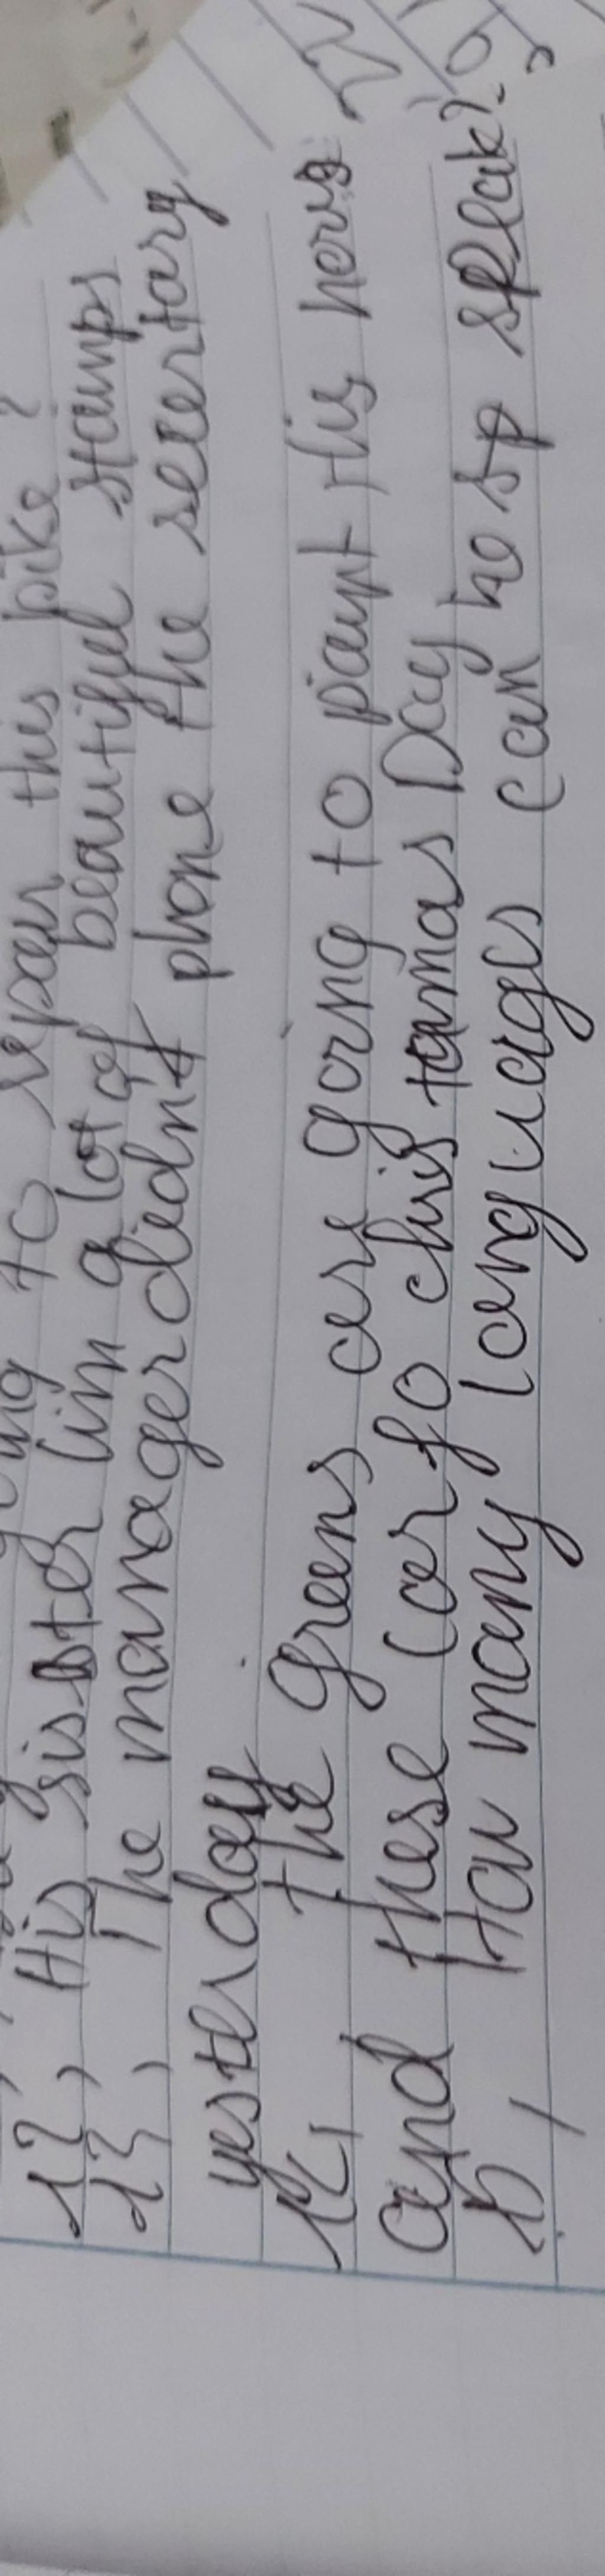 to repair this bike?
12, His sister lim a lot of beautiful stamps
13, The manager didnt phone the secertary
yesterday
14, the greens are going to paint this hous
and these car fo christamas Day
15, Han many languages can he sp speak?